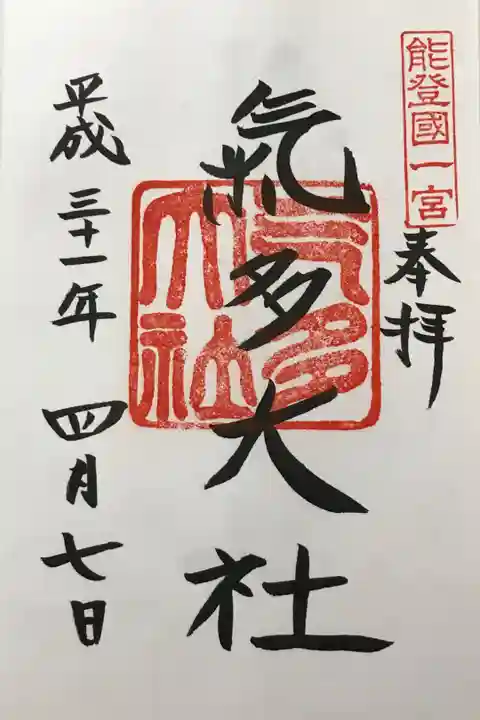 能登國一宮
奉拝
氣多大社
气多大社
平成三十一年四月七日